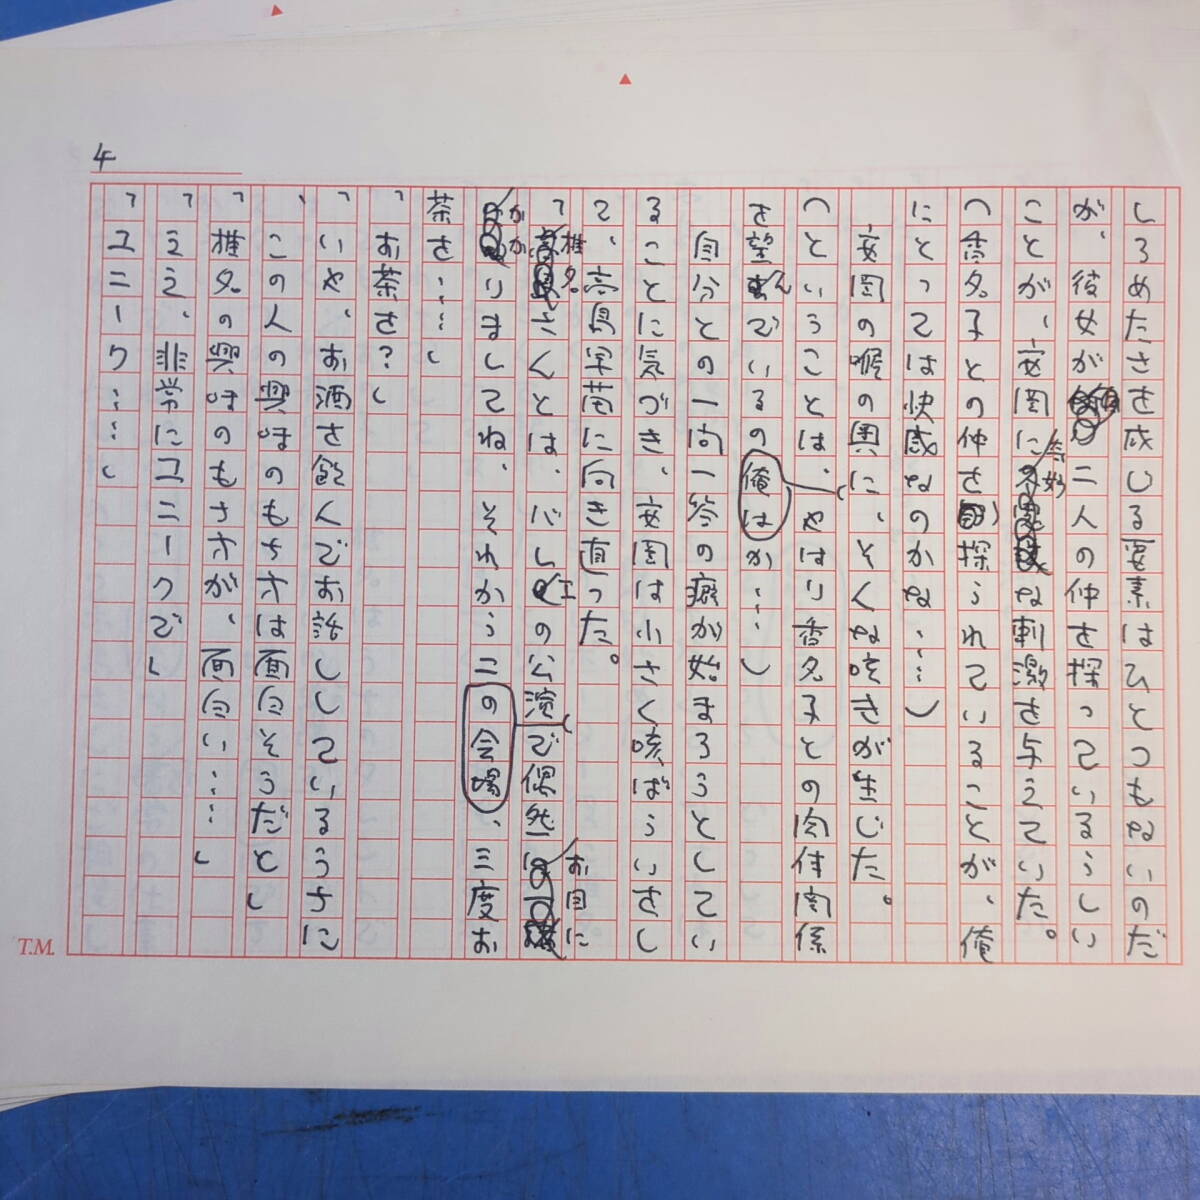 しろめたさを感じる要素はひとつもないのだ
が、彼女が二人の仲を探っているらしい
ことが、安岡に奇妙な刺激を与えていた。
(香名子との仲を探られていることが、俺
にとっては快感なのかな……)
安岡の喉の奥に、そんな呟きが生じた。
(ということは、やはり香名子との肉体関係
を望んでいるの俺はか……」
自分との一問一答の癖が始まろうとしてい
ることに気づき、安岡は小さく咳ばらいさし
て、高見早苗に向き直った。
「椎名さんとは、バレエの公演で偶然お目に
かかりましてね、それから二の会場、三度お
茶を……」
「お茶を?」
「いや、お酒を飲んでお話ししているうちに
、この人の興味のもち方は面白そうだと」
「椎名の興味のもち方が、面白い……」
「ええ、非常にユニークで」
「ユニーク……」
4
T.M.